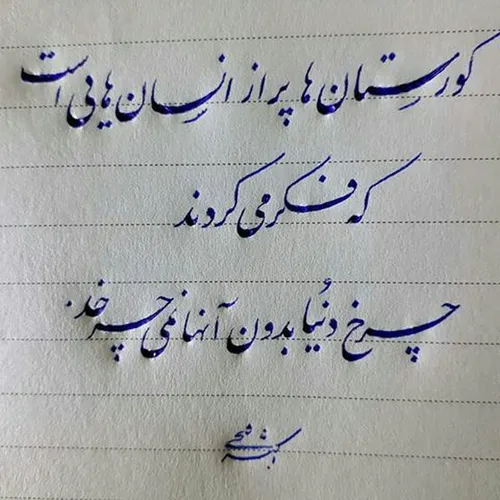 کورستان ها پر از انسان هایی است
که فکر می کردند
چرخ دنیا بدون آنها نمی چرخد.